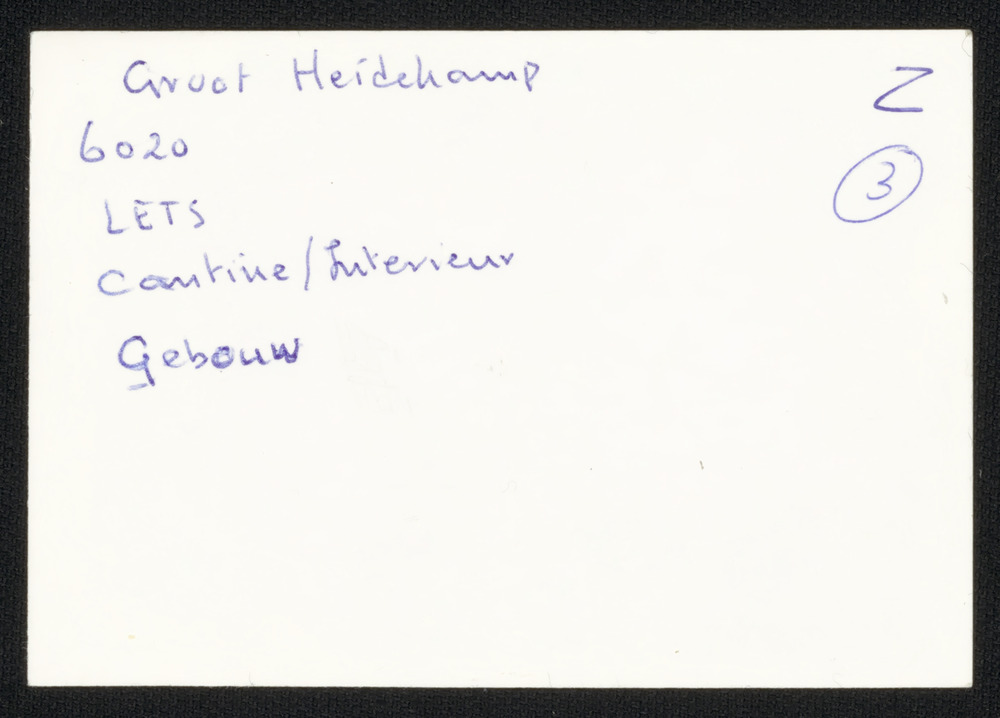 Groot Heidekamp
Z
6020
3
LETS
Cantine/Interieur
Gebouw